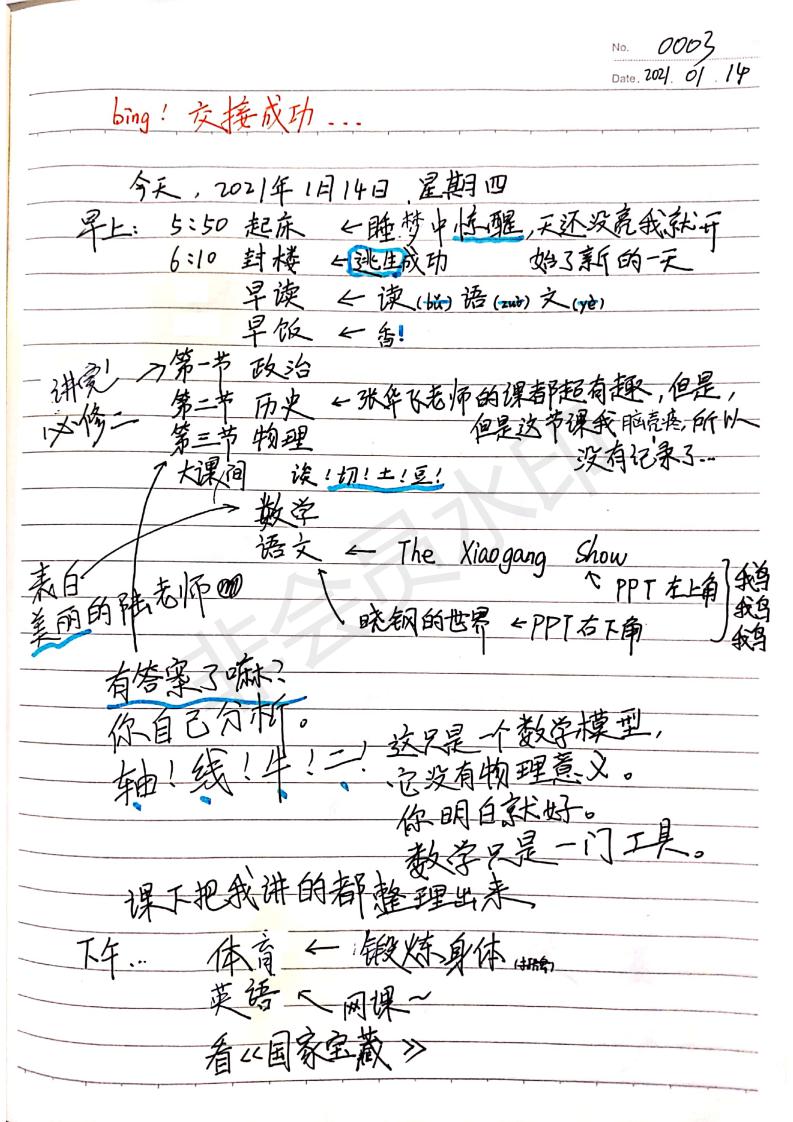 No. 0003
Date. 2021. 01. 14
bing! 交接成功...
今天,2021年1月14日,星期四
早上: 5:50 起床 ←睡梦中惊醒,天还没亮我就开
始了新的一天
6:10 封楼 ←逃生成功
早读 ← 读(bù) 语(zuò) 文(yè)
早饭 ← 香!
讲完!
必修二
第一节 政治
第二节 历史 ←张华飞老师的课都超有趣,但是,
但是这节课我脑壳疼,所以
没有记录了...
第三节 物理
大课间 诶!切!土!豆!
数学
语文 ← The Xiaogang Show
PPT左上角
晓钢的世界 ←PPT右下角
表白
美丽的陆老师
有答案了嘛?
你自己分析。
轴!线!牛!二!
这只是一个数学模型,
它没有物理意义。
你明白就好。
数学只是一门工具。
课下把我讲的都整理出来,
下午... 体育 ← 锻炼身体
英语 ↖网课~
看《国家宝藏》
非会员水印